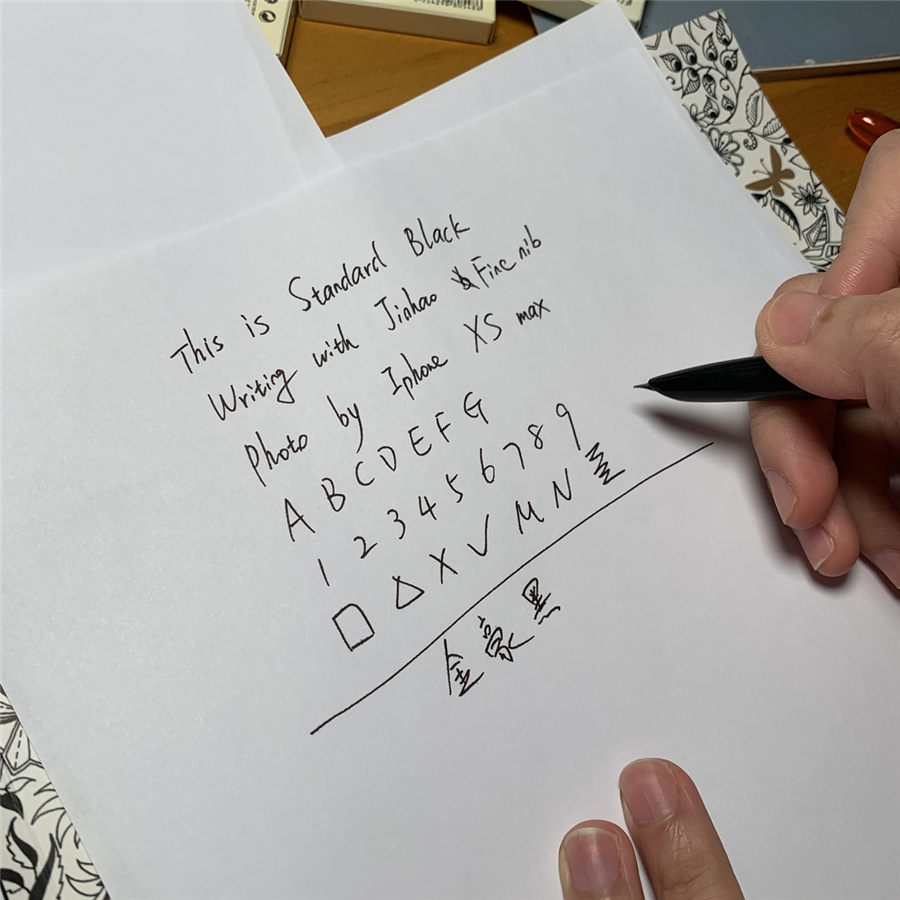 This is Standard Black
Writing with Jinhao Fine nib
Photo by Iphone XS max
A B C D E F G
1 2 3 4 5 6 7 8 9
□ △ X ✓ M N
金豪黑